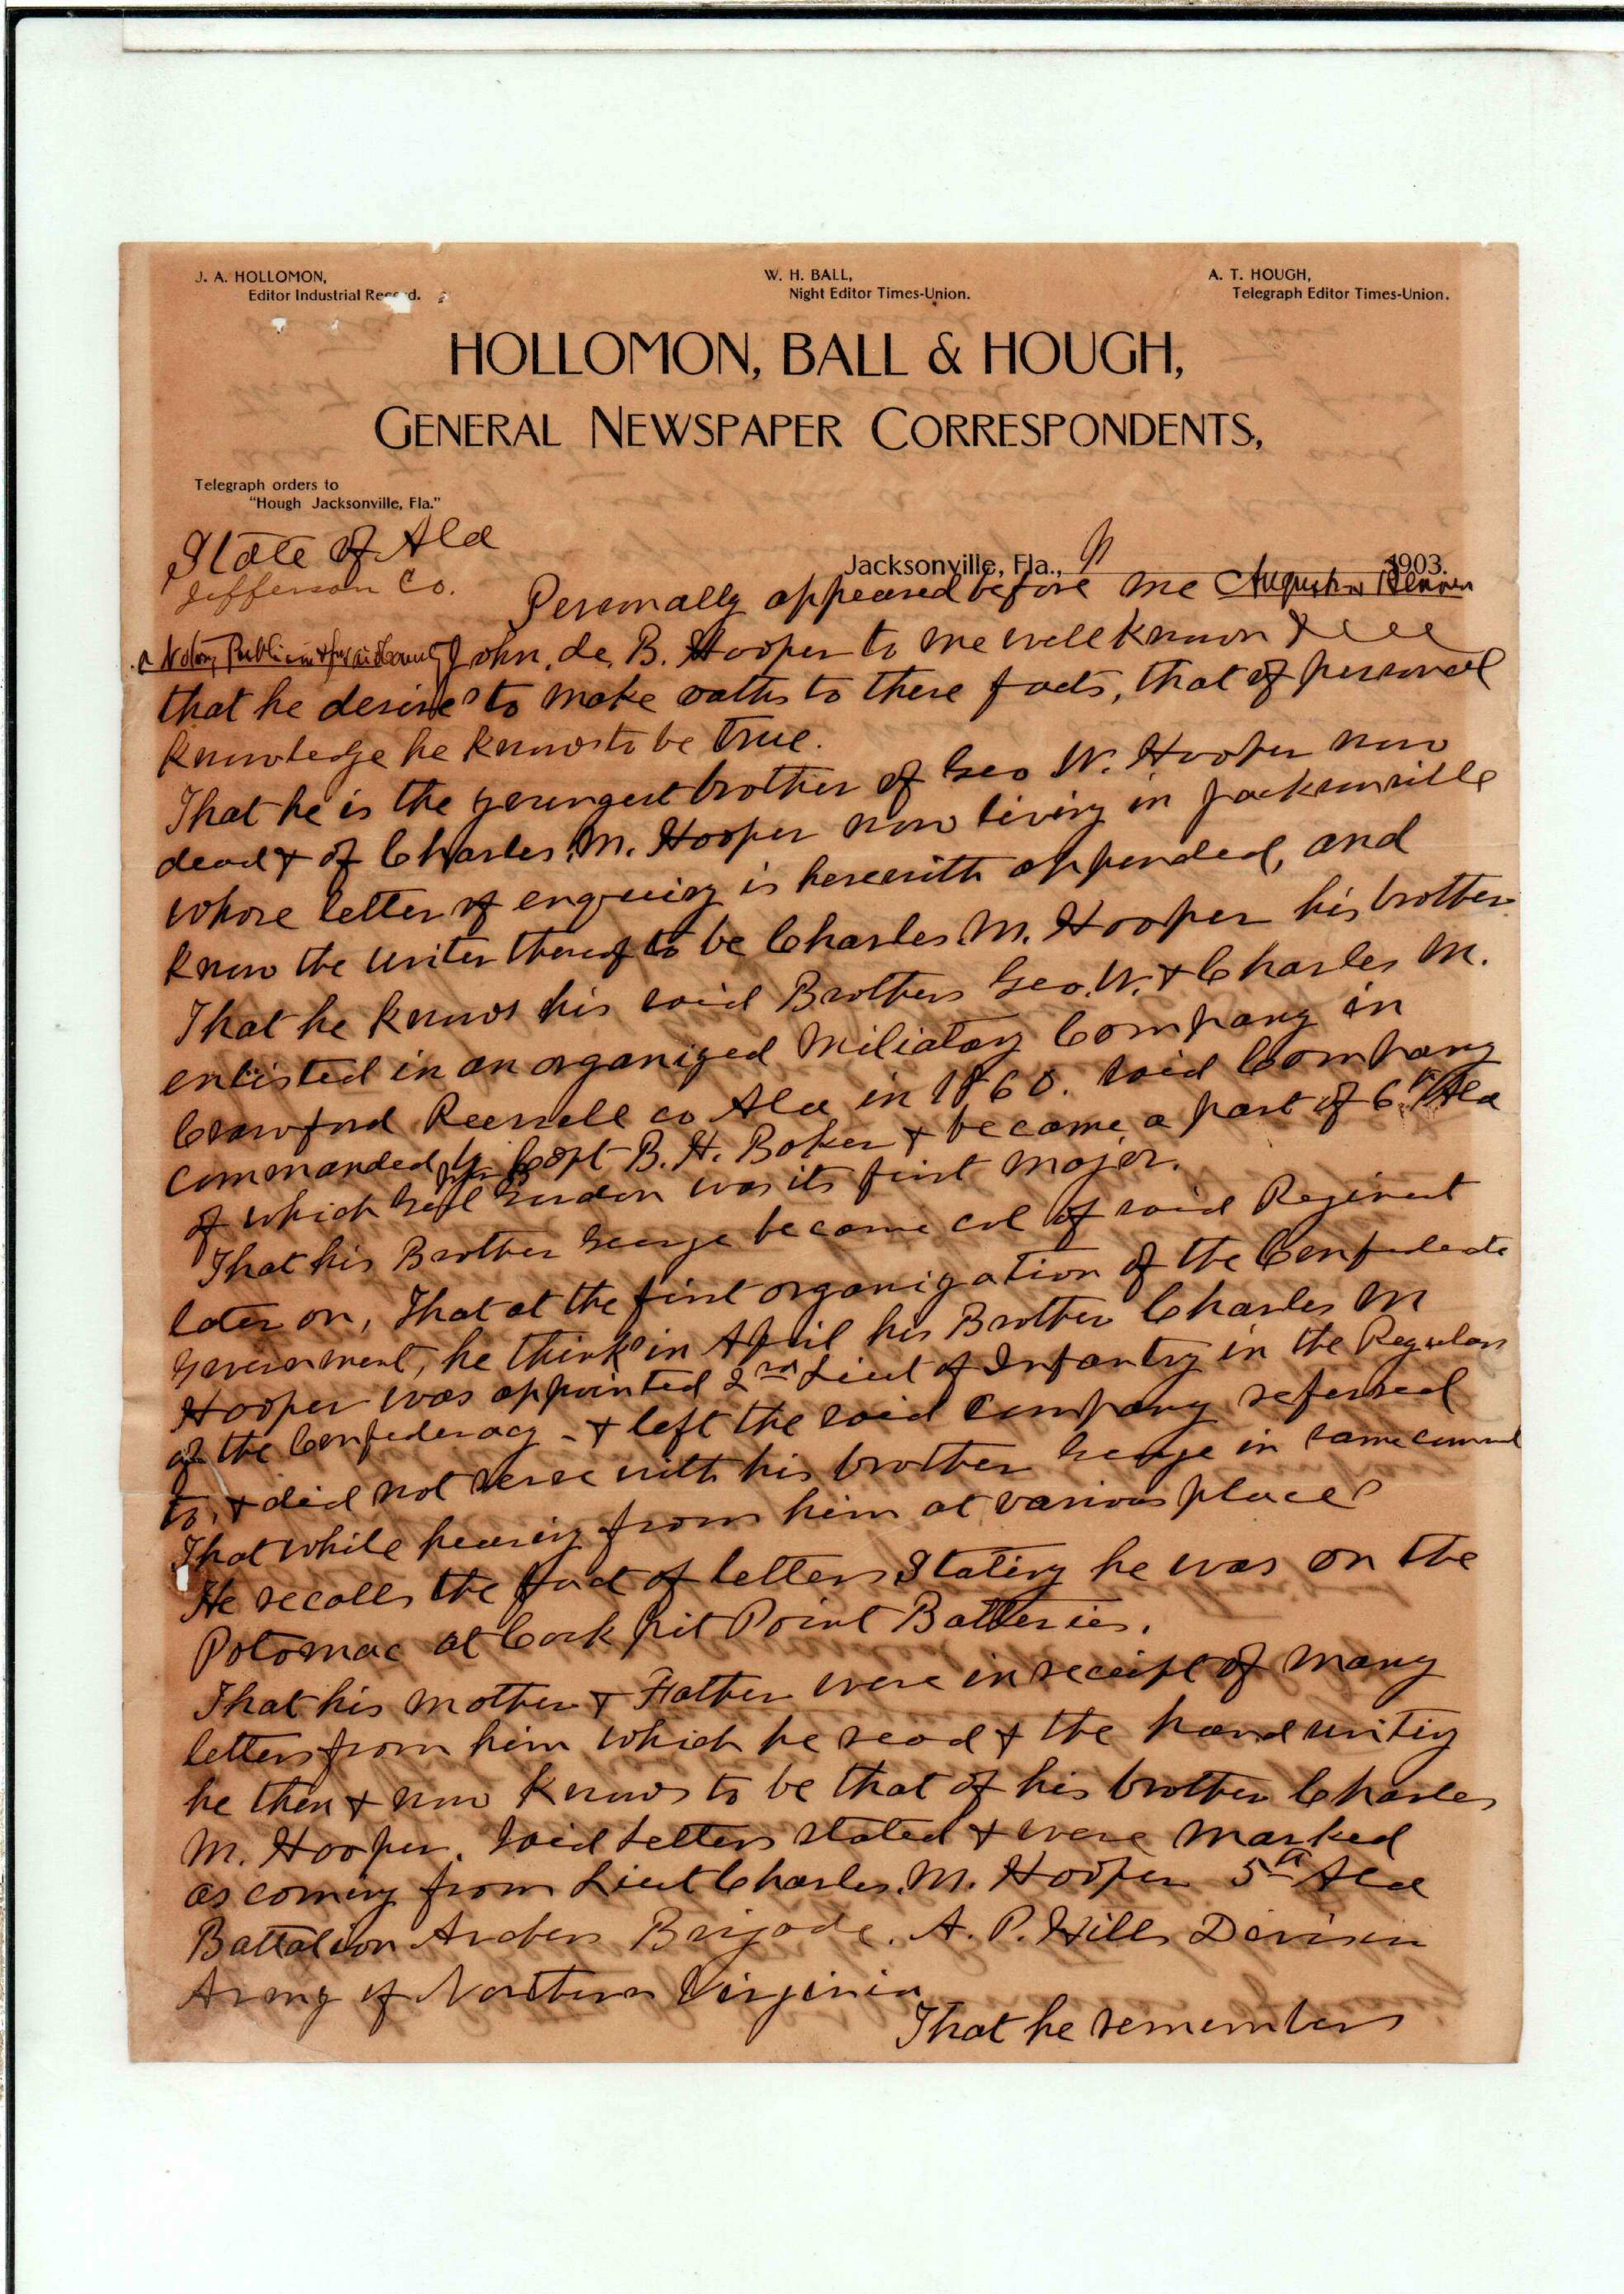 J. A. HOLLOMON,
Editor Industrial Record.
W. H. BALL,
Night Editor Times-Union.
A. T. HOUGH,
Telegraph Editor Times-Union.
HOLLOMON, BALL & HOUGH,
GENERAL NEWSPAPER CORRESPONDENTS,
Telegraph orders to
"Hough Jacksonville, Fla."
State of Ala
Jacksonville, Fla., 1903.
Jefferson Co.
Personally appeared before me Augustus
a Notary Public in & for said County John. de. B. Hooper to me well known &
that he desires to make oath to these facts, that of personal
knowledge he knows to be true.
That he is the youngest brother of Geo W. Hooper now
dead & of Charles. M. Hooper now living in Jacksonville
whose letter of enquiry is herewith appended, and
know the writer thereof to be Charles. M. Hooper his brother
That he knows his said Brothers Geo. W. & Charles M.
enlisted in an organized Miliatary Company in
Crawford Russell co Ala in 1860. Said Company
commanded by Capt B. H. Baker & became a part of 6th Ala
of which Genl Gordon was its first major.
That his Brother George became col of said Regiment
later on, That at the first organization of the Confederate
Government, he thinks in April his Brother Charles M
Hooper was appointed 2nd Lieut of Infantry in the Regulars
of the Confederacy - & left the said Company referred
to, & did not serve with his brother George in same command
That while hearing from him at various places
He recalls the fact of letters Stating he was on the
Potomac at Cock pit Point Batteries.
That his mother & Father were in receipt of many
letters from him which he read & the handwriting
he then & now knows to be that of his brother Charles
M. Hooper. Said Letters stated & were marked
as coming from Lieut Charles. M. Hooper 5th Ala
Battalion Archers Brigade. A. P. Hills Division
Army of Northern Virginia
That he remembers